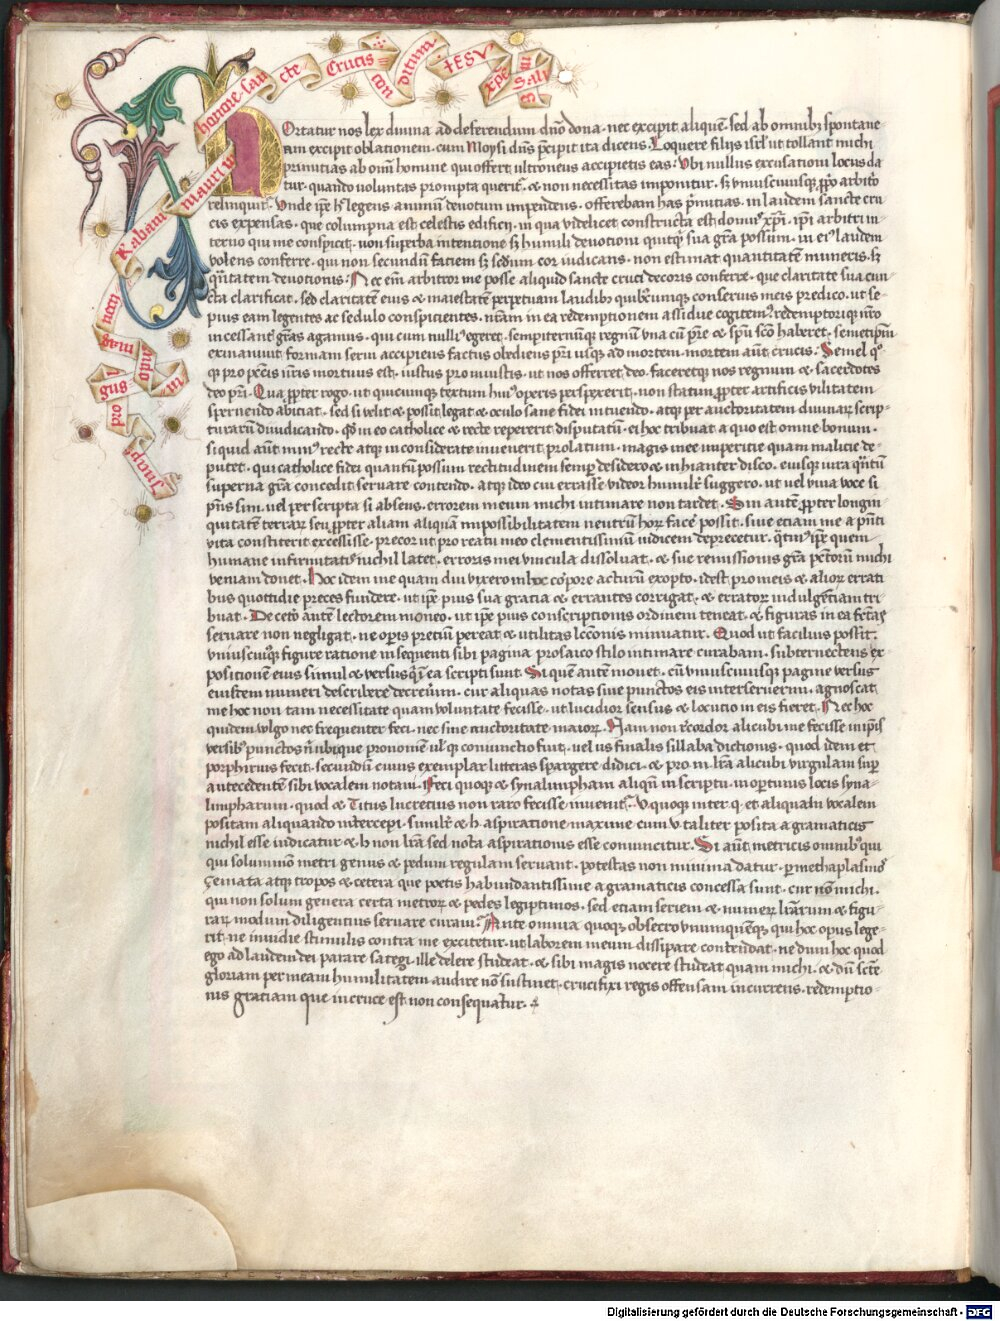 Rabani mauri in honore sancte Crucis conditum IESV xpe Sali
magneti gus opus m pro Incip
Ortatur nos lex diuina ad deferendum dño dona. nec excipit aliquē. sed ab omnibꝫ spontane-
am excipit oblationem. cum Moysi dñs p̄cipit ita dicens. Loquere filijs isrl̄ ut tollant michi
primitias ab om̄i homine qui offert ultroneus accipietis eas. Vbi nullus excusationi locus da
tur. quando voluntas prompta querit̄. & non necessitas imponitur. sꝫ vniuscuiusqꝫ ꝓprio arbitrio
relinquit̄. Vnde ip̄e h̄ legens animū deuotum impendens. offerebam has p̄mitias. in laudem sancte cru
cis expensas. que columpna est celestis edificij. in qua videlicet constructa est domus xp̄i. ip̄i arbitri in-
terno qui me conspicit. non superba intentione sꝫ humili deuotioni quitqꝫ sua gr̄a possum. in eiꝰ laudem
volens conferre. qui non secundū faciem sꝫ sedum cor iudicans. non estimat quantitatē muneris. sꝫ
qn̄titatem deuotionis. Nec em̄ arbitror me posse aliquid sancte cruci decoris conferre. que claritate sua cun
cta clarificat. sed claritatē eius & maiestatē perpetuam laudibꝫ quibuscunqꝫ conserius meis predico. ut se-
pius eam legentes ac sedulo conspicientes. nr̄am in ea redemptionem assidue cogitemꝰ. redemptoriqꝫ nr̄o
incessanter gr̄as agamus. qui cum nulliꝰ egeret. sempiternūqꝫ regnū vna cū p̄re & sp̄u sc̄o haberet. semetip̄m
exinaniuit formam serui accipiens factus obediens p̄ri usqꝫ ad mortem. mortem aut̄ crucis. Semel qꝰ-
qꝫ pro pc̄is nr̄is mortuus est. iustus pro iniustis. ut nos offerret deo. faceretqꝫ nos regnum & sacerdotes
deo p̄ri. Qua ꝓpter rogo. ut quicunqꝫ textum huiꝰ operis perspexerit. non statim ꝓpter artificis vilitatem
spernendo abiciat. sed si velit & possit. legat & oculo sane fidei intuendo. atqꝫ per auctoritatem diuinarꝫ scrip-
turarū diiudicando. qd̄ in eo catholice & recte repererit disputatū. ei hoc tribuat a quo est omne bonum.
si quid aut̄ minꝰ recte atqꝫ inconsiderate inuenerit prolatum. magis mee imperitie quam malicie de-
putet. qui catholice fidei quantū possum rectitudinem semp̄ desidero & inhianter disco. eiusqꝫ iura qn̄tū
superna gr̄a concedit seruare contendo. atqꝫ ideo cui errasse videor humilit̄ suggero. ut vel viua voce si
p̄ns sim. uel per scripta si absens. errorem meum michi intimare non tardet. Sin autē ꝓpter longin-
quitatē terrarꝫ seu ꝓpter aliam aliquā impossibilitatem neutrū horꝫ facē possit. siue etiam me a p̄nti
vita constiterit excessisse. precor ut pro reatu meo clementissimū iudicem deprecetur. q̄tinꝰ ip̄e quem
humane infirmitatis nichil latet. erroris mei vincula dissoluat. & sue remissionis gr̄a pc̄torū michi
veniam donet. Hoc idem me quam diu vixero in hoc corpore acturū exopto. idest pro meis & aliorꝫ errati
bus quottidie preces fundere. ut ip̄e pius sua gratia & errantes corrigat. & erratorꝫ indulgētiam tri
buat. De cet̄o autē lectorem moneo. ut ip̄e pius conscriptionis ordinem teneat. & figuras in ea fc̄tas
seruare non negligat. ne op̄is preciū pereat & utilitas lectionis minuatur. Quod ut facilius possit.
vniuscuiꝰqꝫ figure ratione in sequenti sibi pagina prosaico stilo intimare curabam. subternectens ex
positionē eius simul & versus qui in ea scripti sunt. Si quē autē mouet. cū vniuscuiusqꝫ pagine versus
eiusdem numeri describere decreuim. cur aliquas notas siue punctos eis interseruerim. agnoscat
me hoc non tam necessitate quam voluntate fecisse. ut lucidior sensus & locutio in eis fieret. Nec hoc
quidem vulgo nec frequenter feci. nec sine auctoritate maiorꝫ. Nam non recordor alicubi me fecisse in ip̄is
versibꝰ punctos n̄ ubique pronomē ul̄ qꝫ coniunctio fuit. uel us finalis sillaba dictionis. quod idem et
porphirius fecit. secundū cuius exemplar litteras spargere didici. & pro m. lr̄a alicubi virgulam sup̄
antecedentē sibi vocalem notaui. Feci quoqꝫ & synalimpham aliqn̄ in scriptu in oportunis locis syna-
limpharum. quod & Titus lucretius non raro fecisse inuenit̄. V quoqꝫ inter q. et aliquam vocalem
positam aliquando intercepi. similit̄ & h. aspiratione maxime cum v. taliter posita a gramaticis
nichil esse iudicatur & h non lr̄a sed nota aspirationis esse conuincitur. Si aut̄ metricis omnibꝰ qui
qui solummō metri genus & pedum regulam seruant. potestas non minima datur. p̄ methaplasmos
scemata atqꝫ tropos & cetera que poetis habundantissime a gramaticis concessa sunt. cur nō michi.
qui non solum genera certa metrorꝫ & pedes legiptimos. sed etiam seriem & numerꝫ lr̄arum & figu-
rarꝫ modum diligentius seruare curaui. Ante omnia quoqꝫ obsecro vnumquēqꝫ qui hoc opus lege-
rit. ne inuidie stimulis contra me excitetur. ut laborem meum dissipare contendat. ne dum hoc quod
ego ad laudem dei parare sategi. ille delere studeat. & sibi magis nocere studeat quam michi. & dū sc̄te
gloriam per meam humilitatem audire nō sustinet. crucifixi regis offensam incurrens. redemptio-
nis gratiam que in cruce est non consequatur.
Digitalisierung gefördert durch die Deutsche Forschungsgemeinschaft - DFG